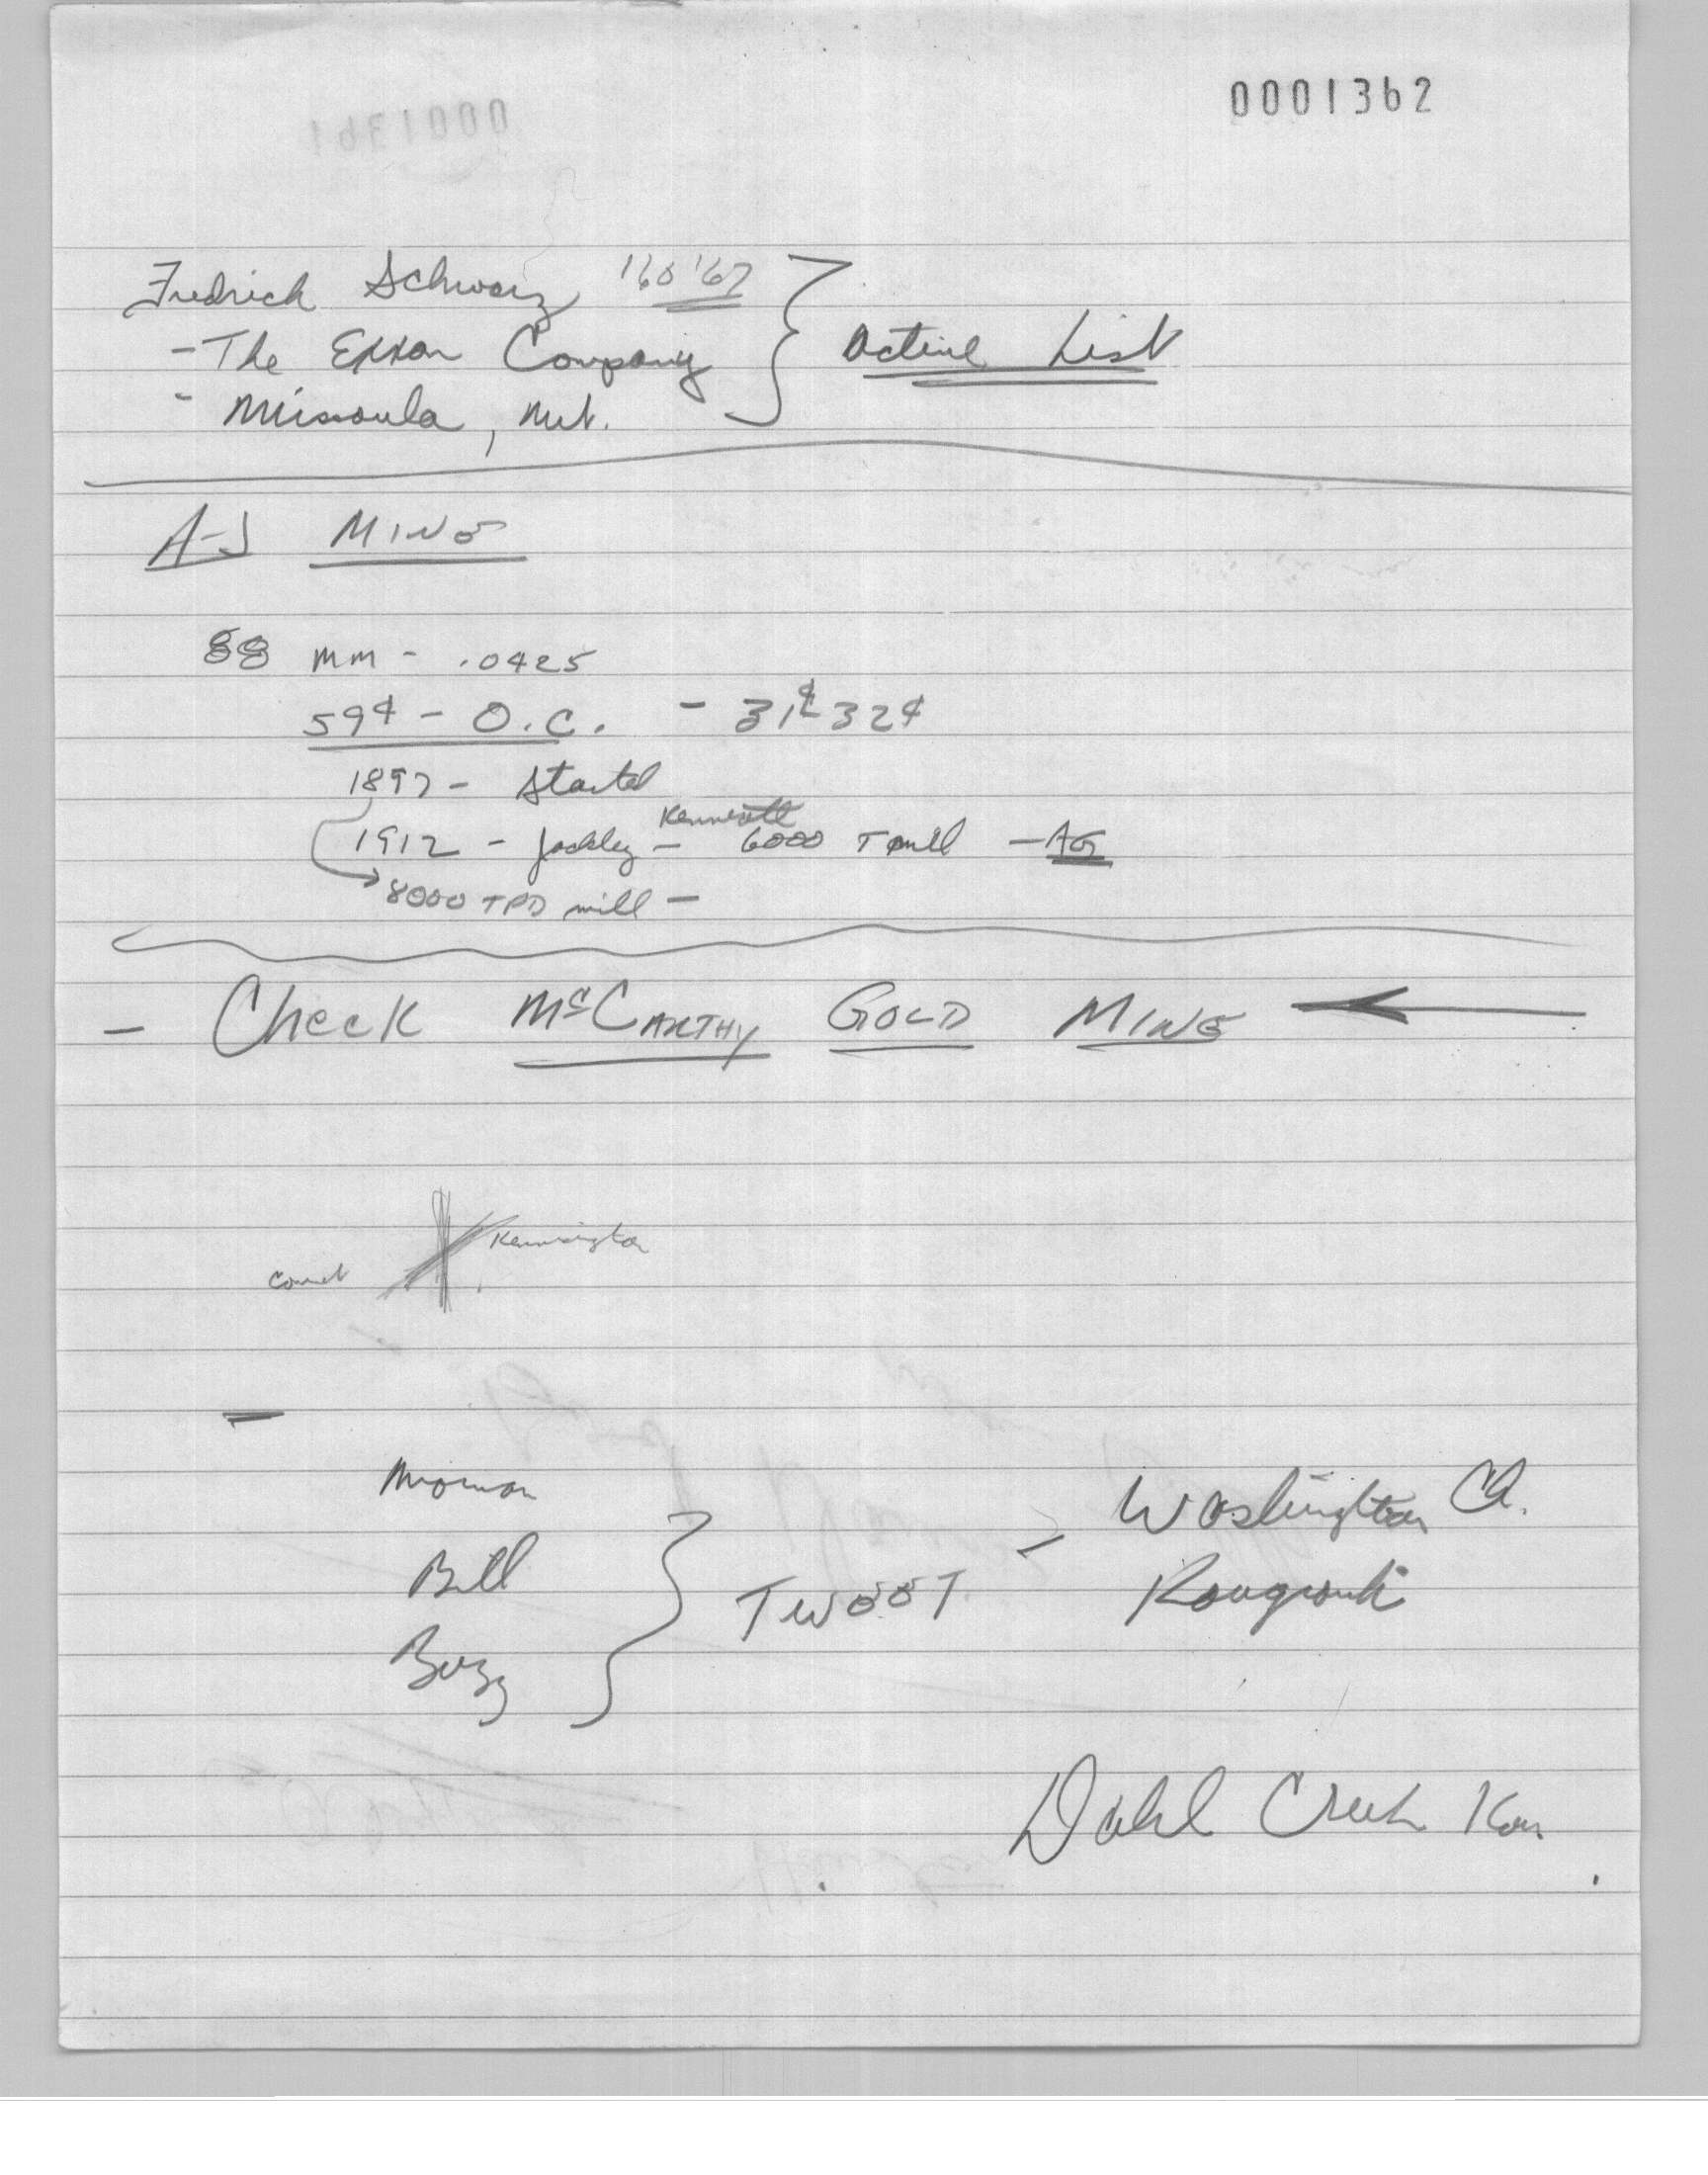 0001362
Fredrick Schwarz '60 '67
- The Exxon Company
- Missoula, Mt.
Active List
A-J MINE
88 mm - .0425
59¢ - O.C. - 31¢ 32¢
1897 - Started
1912 - Jackling - Kennecott 6000 T mill - AG
8000 TPD mill -
- Check McCARTHY GOLD MINE
Kensington
Comet
Bill
Buzz
TWEET - Washington Ck.
Kougarok
Dahl Creek Kou